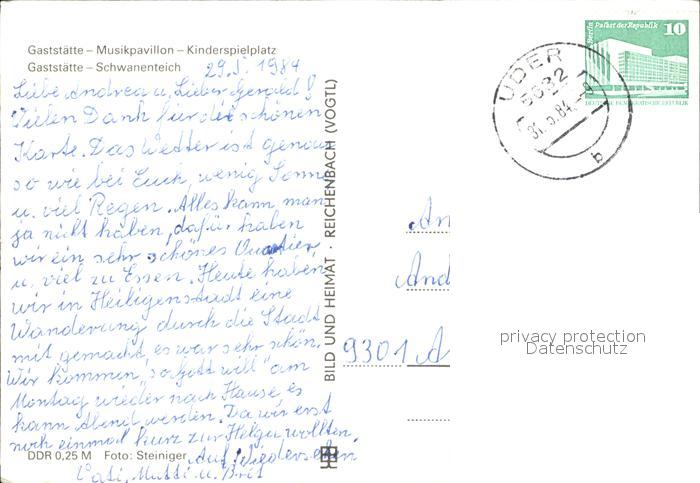 Gaststätte – Musikpavillon – Kinderspielplatz
Gaststätte – Schwanenteich
29.5.1984
Liebe Andrea u. Lieber Gerald!
Vielen Dank für die schönen
Karte. Das Wetter ist genau
so wie bei Euch, wenig Sonne
u. viel Regen. Alles kann man
ja nicht haben, dafür haben
wir ein sehr schönes Quartier
u. viel zu Essen. Heute haben
wir in Heiligenstadt eine
Wanderung durch die Stadt
mit gemacht es war sehr schön.
Wir kommen "so Gott will" am
Montag wieder nach Hause, es
kann Abend werden. Da wir erst
noch einmal kurz zur Helga wollten.
Auf Wiedersehen
Vati, Mutti u.
DDR 0,25 M Foto: Steiniger
BILD UND HEIMAT · REICHENBACH (VOGTL)
Berlin Palast der Republik 10
DEUTSCHE DEMOKRATISCHE REPUBLIK
UDER
5632
31.5.84
b
An
And
9301 A
privacy protection
Datenschutz